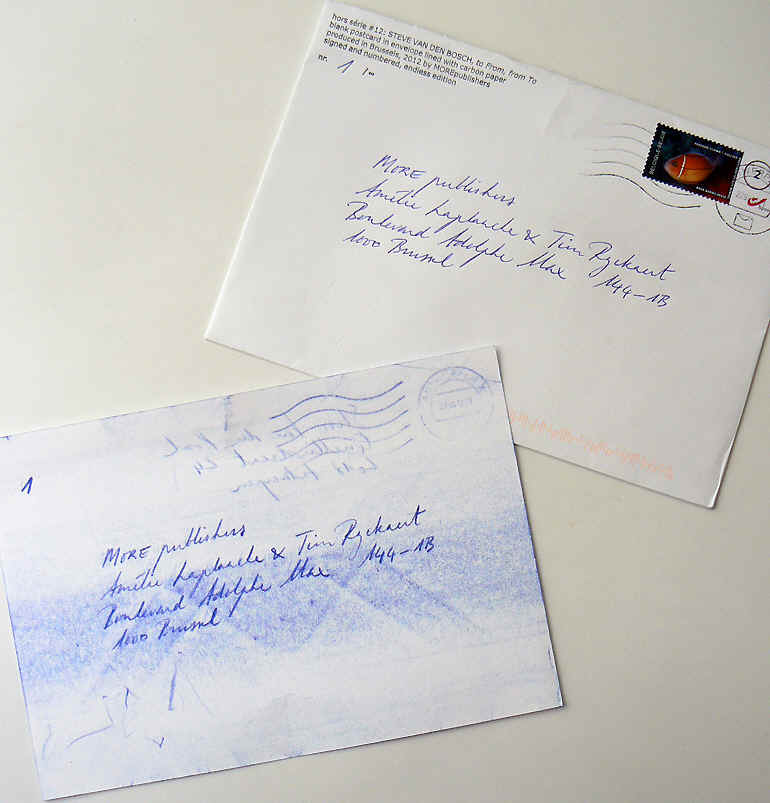 hors série #12: STEVE VAN DEN BOSCH, to From, from To
blank postcard in envelope lined with carbon paper
produced in Brussels, 2012 by MOREpublishers
signed and numbered, endless edition
nr. 1 /∞
MORE publishers
Amélie Laplanche & Tim Ryckaert
Boulevard Adolphe Max 144-1B
1000 Brussel
2
1
MORE publishers
Amélie Laplanche & Tim Ryckaert
Boulevard Adolphe Max 144-1B
1000 Brussel